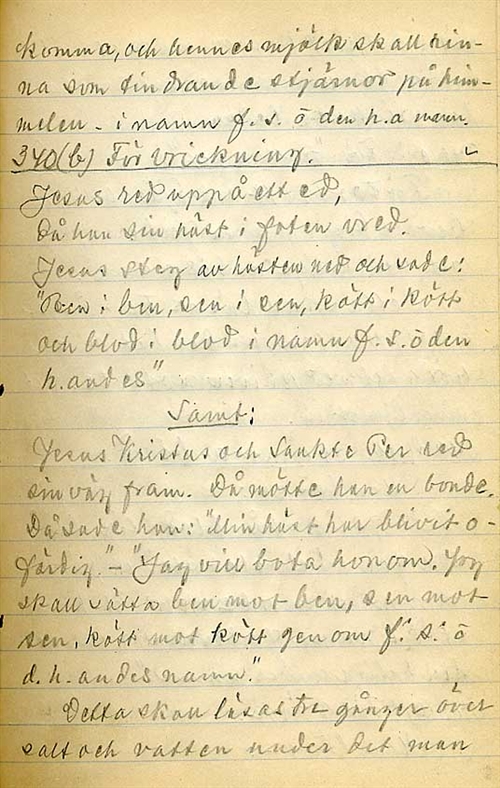 komma, och hennes mjölk skall rin-
na som tindrande stjärnor på him-
melen - i namn f. s. o den h. a namn.
340(b) För vrickning.
Jesus red uppå ett ed,
Då han sin häst i foten vred.
Jesus steg av hästen ned och sade:
"Ben i ben, sen i sen, kött i kött
och blod i blod i namn f. s. o den
h. andes"
Samt:
Jesus Kristus och Sankte Per red
sin väg fram. Då mötte han en bonde.
Då sade han: "Min häst har blivit o-
färdig." - "Jag vill bota honom. Jag
skall sätta ben mot ben, sen mot
sen, kött mot kött genom f. s. o
d. h. andes namn."
Detta skall läsas tre gånger över
salt och vatten under det man